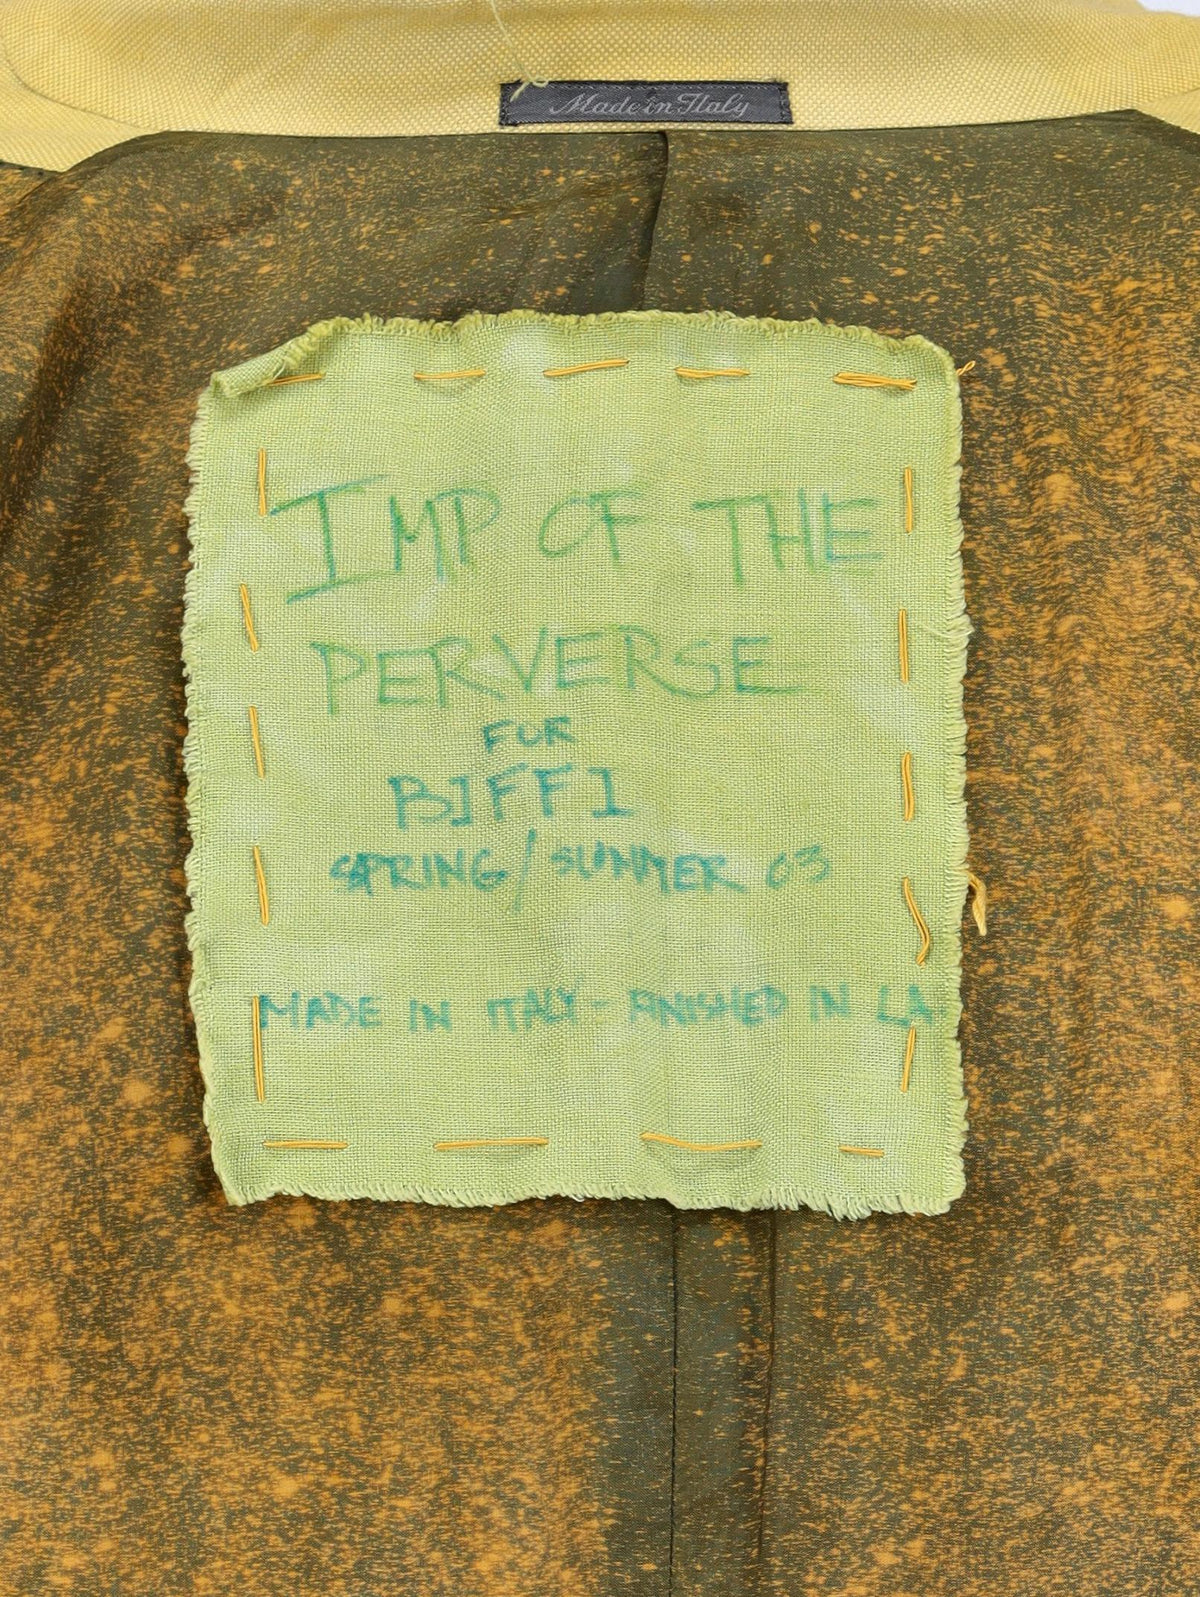 Made in Italy
IMP OF THE
PERVERSE
FOR
BIFFI
SPRING/SUMMER 03
MADE IN ITALY - FINISHED IN LA